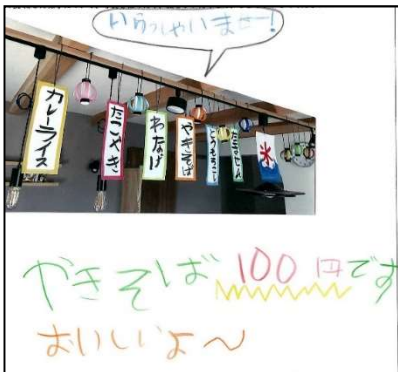 いらっしゃいませー!
カレーライス
たこやき
わなげ
やきそば
とうもろこし
たません
氷
やきそば 100円です
おいしいよ〜